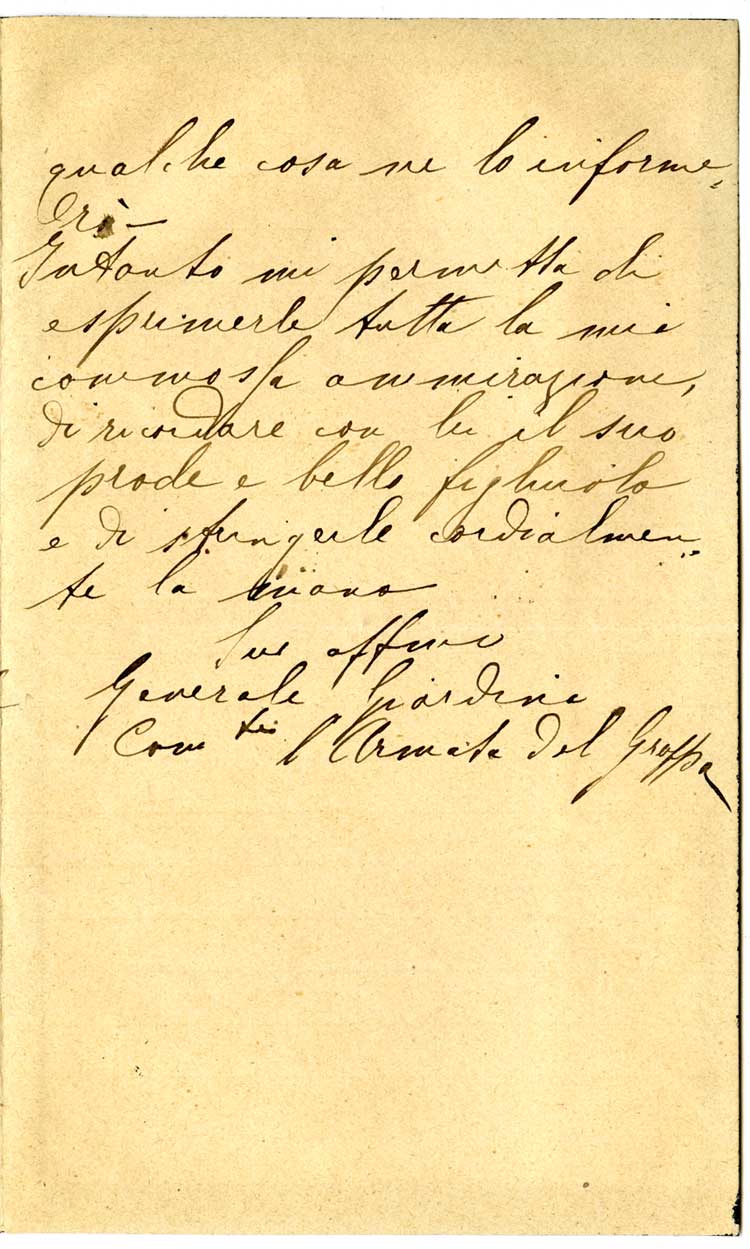 qualche cosa ne lo informe-
rò -
Intanto mi permetta di
esprimerle tutta la mia
commossa ammirazione,
di ricordare con lei il suo
prode e bello figliuolo
e di stringerle cordialmen-
te la mano
Suo affmo
Generale Giardino
Comte l'Armata del Grappa